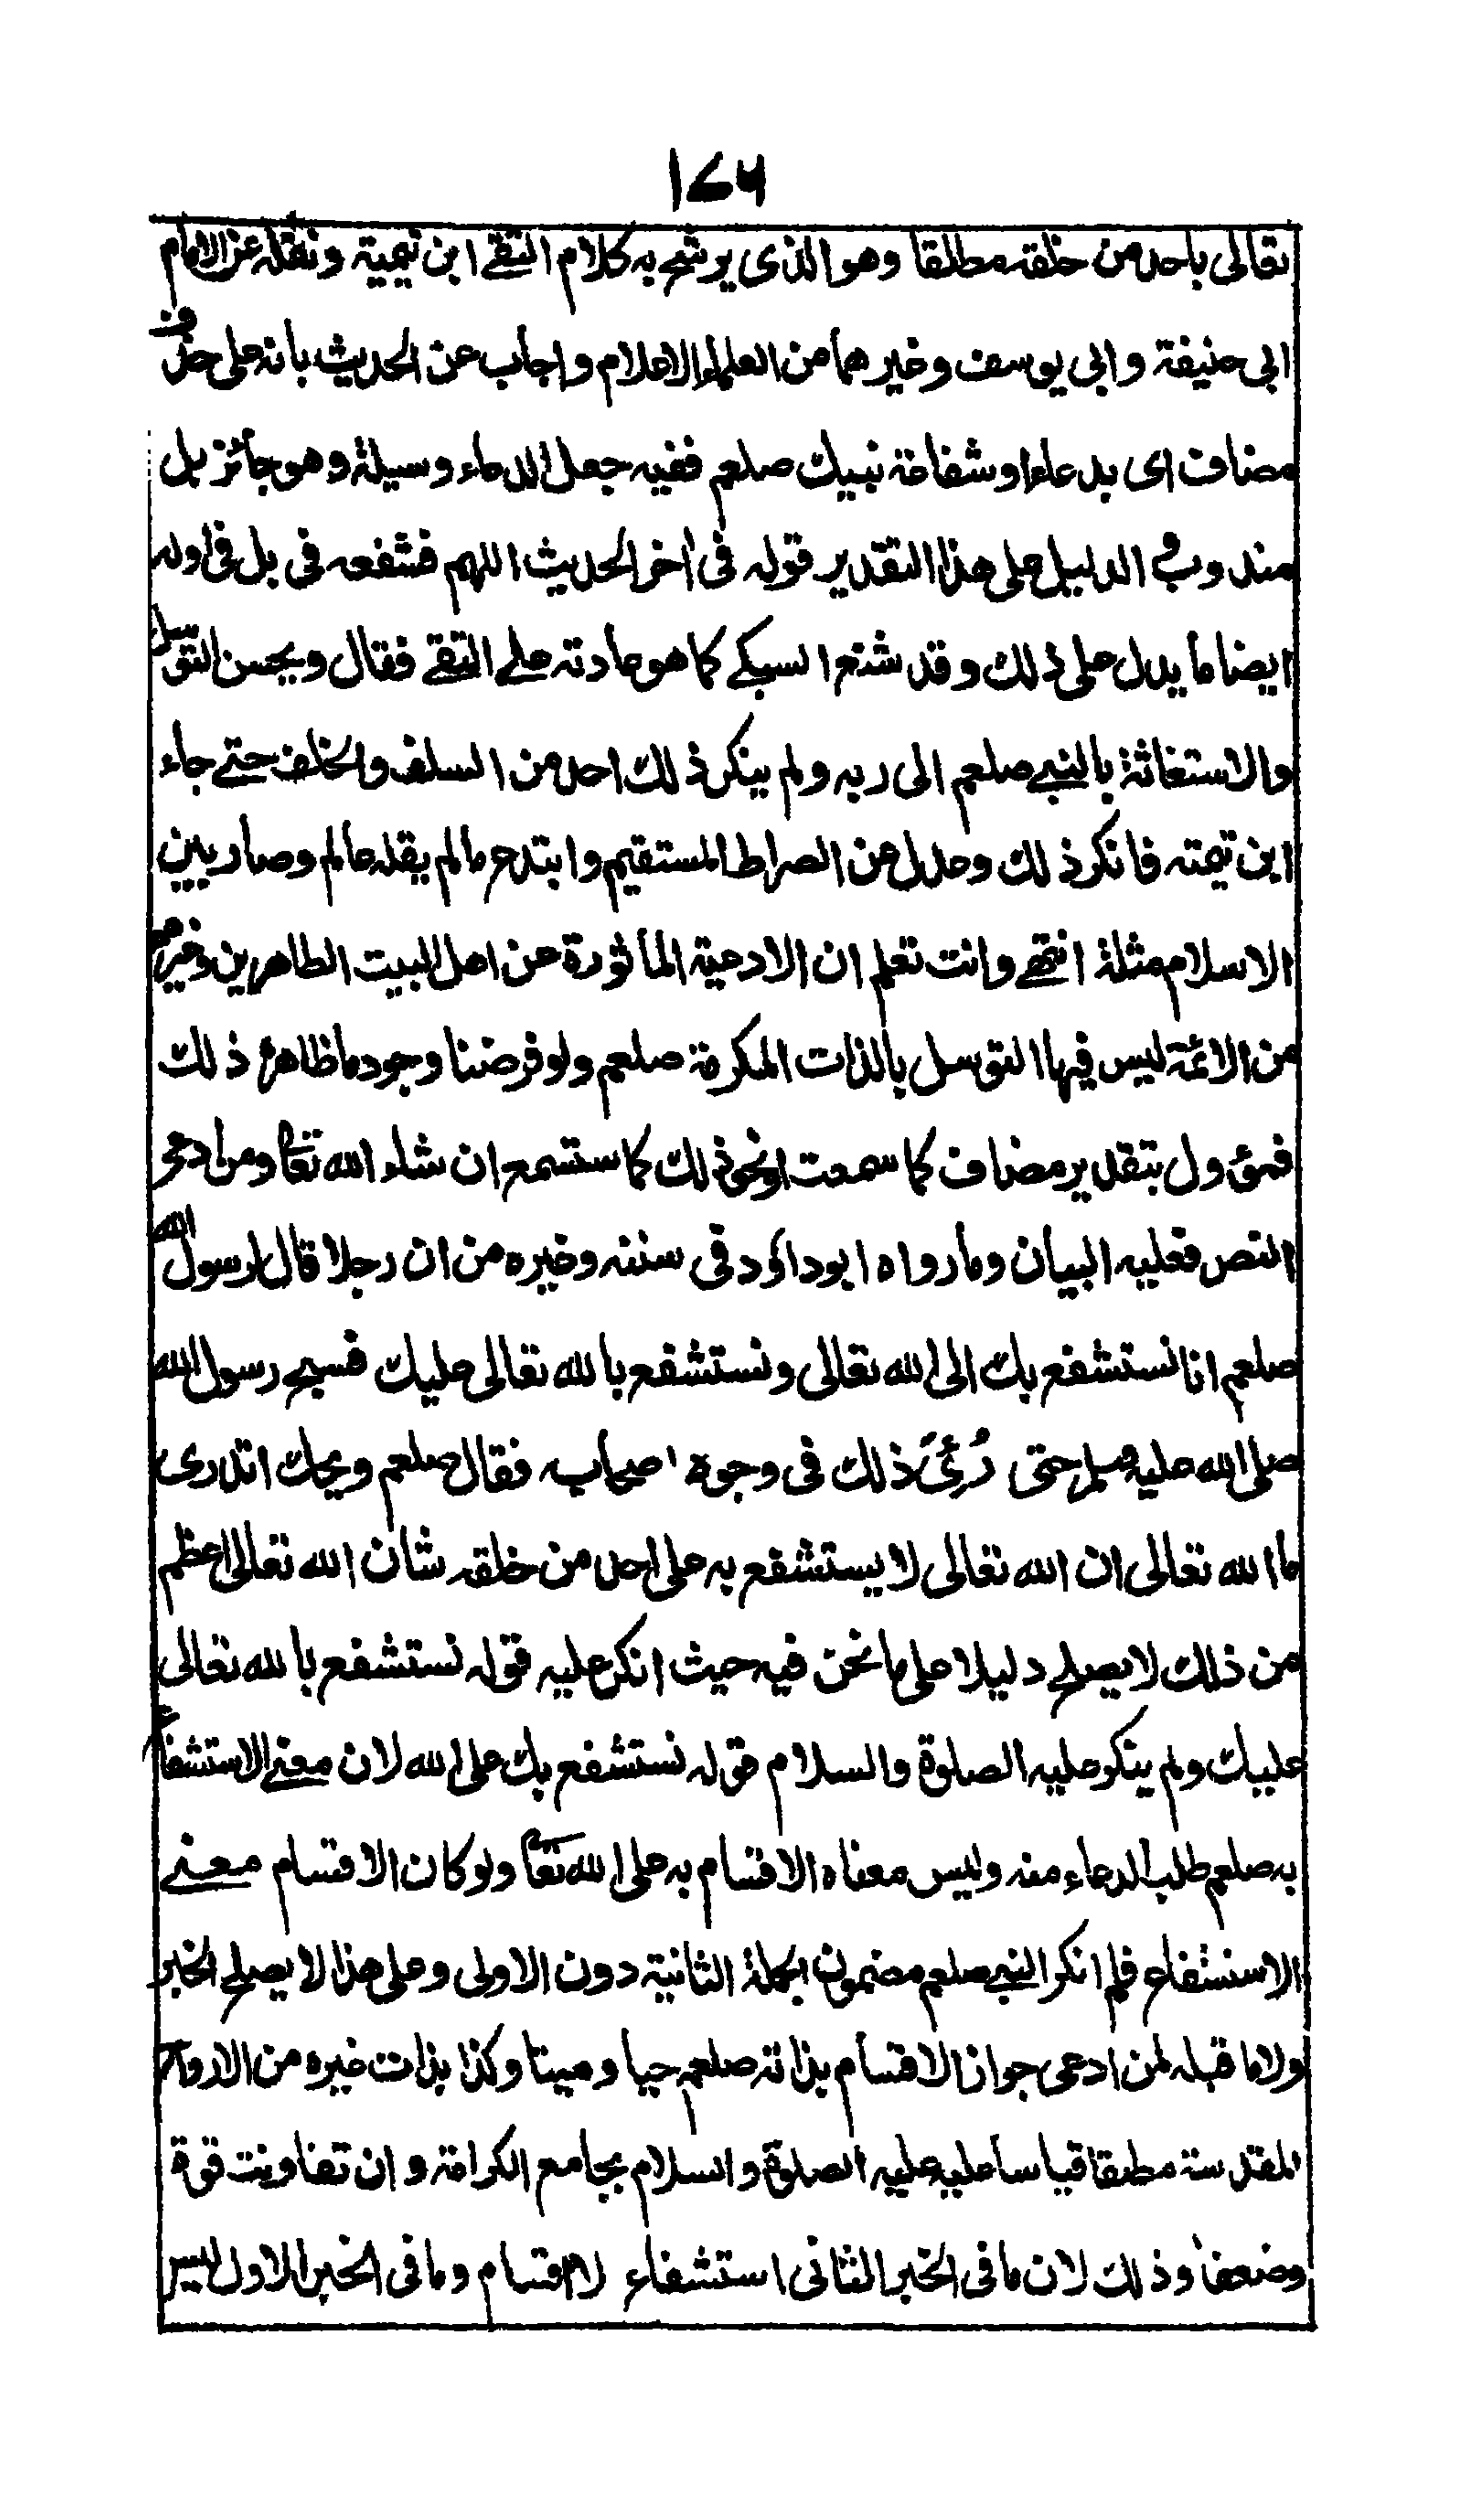 ١٧٤
تعالى باحد من خلقه مطلقا وهو الذى يرشح به كلام التقے ابن تيمية ونقله عن الامام
ابى حنيفة وابى يوسف وغيرهما من العلماء الاعلام واجاب عن الحديث بانه على حذف
مضاف اى بدعاء او شفاعة نبيك صلعم ففيه جعل الدعاء وسيلة وهو جائز بل
مندوب والدليل على هذا التقدير قوله فى اخر الحديث اللهم فشفعه فى بل فى اوله
ايضا ما يدل على ذلك وقد شنع السبكے كما هو عادته علے التقے فقال ويحسن التوسل
والاستغاثة بالنبے صلعم الى ربه ولم ينكر ذلك احد من السلف والخلف حتے جاء
ابن تيمته فانكر ذلك وعدل عن الصراط المستقيم وابتدع مالم يقله عالم وصار بين
الاسلام مثلة انتهے وانت تعلم ان الادعية الماثورة عن اهل البيت الطاهرين وغيرهم
من الائمة ليس فيها التوسل بالذات المكرمة صلعم ولو فرضنا وجود ما ظاهره ذلك
فمؤول بتقدير مضاف كما سمعت او نحو ذلك كما ستسمع ان شاء الله تعا ومن ادعى
النص فعليه البيان وما رواه ابو داؤد فى سننه وغيره من ان رجلا قال لرسول الله
صلعم انا نستشفع بك الى الله تعالى ونستشفع بالله تعالى عليك فسبح رسول الله
صلى الله عليه وسلم حتى رُئِىَ ذلك فى وجوه اصحابه فقال صلعم ويحك اتدرى
ما الله تعالى ان الله تعالى لا يستشفع به على احد من خلقه شان الله تعالى اعظم
من ذلك لا يصلح دليلا على ما نحن فيه حيث انكر عليه قوله نستشفع بالله تعالى
عليك ولم ينكر عليه الصلوة والسلام قوله نستشفع بك على الله لان معنے الاستشفاع
به صلعم طلب الدعاء منه وليس معناه الاقسام به على الله تعا ولو كان الاقسام معنے
الاستشفاع فلم انكر النبے صلعم مضمون الجملة الثانية دون الاولى وعلى هذا لا يصلح الخبر
ولا ما قبله لمن ادعى جواز الاقسام بذاته صلعم حيا وميتا وكذا بذات غيره من الارواح
المقدسة مطلقا قياسا عليه عليه الصلوة والسلام بجامع الكرامة وان تفاوتت قوة
وضعفا وذلك لان ما فى الخبر الثانى استشفاء لا اقسام وما فى الخبر الاول ليس